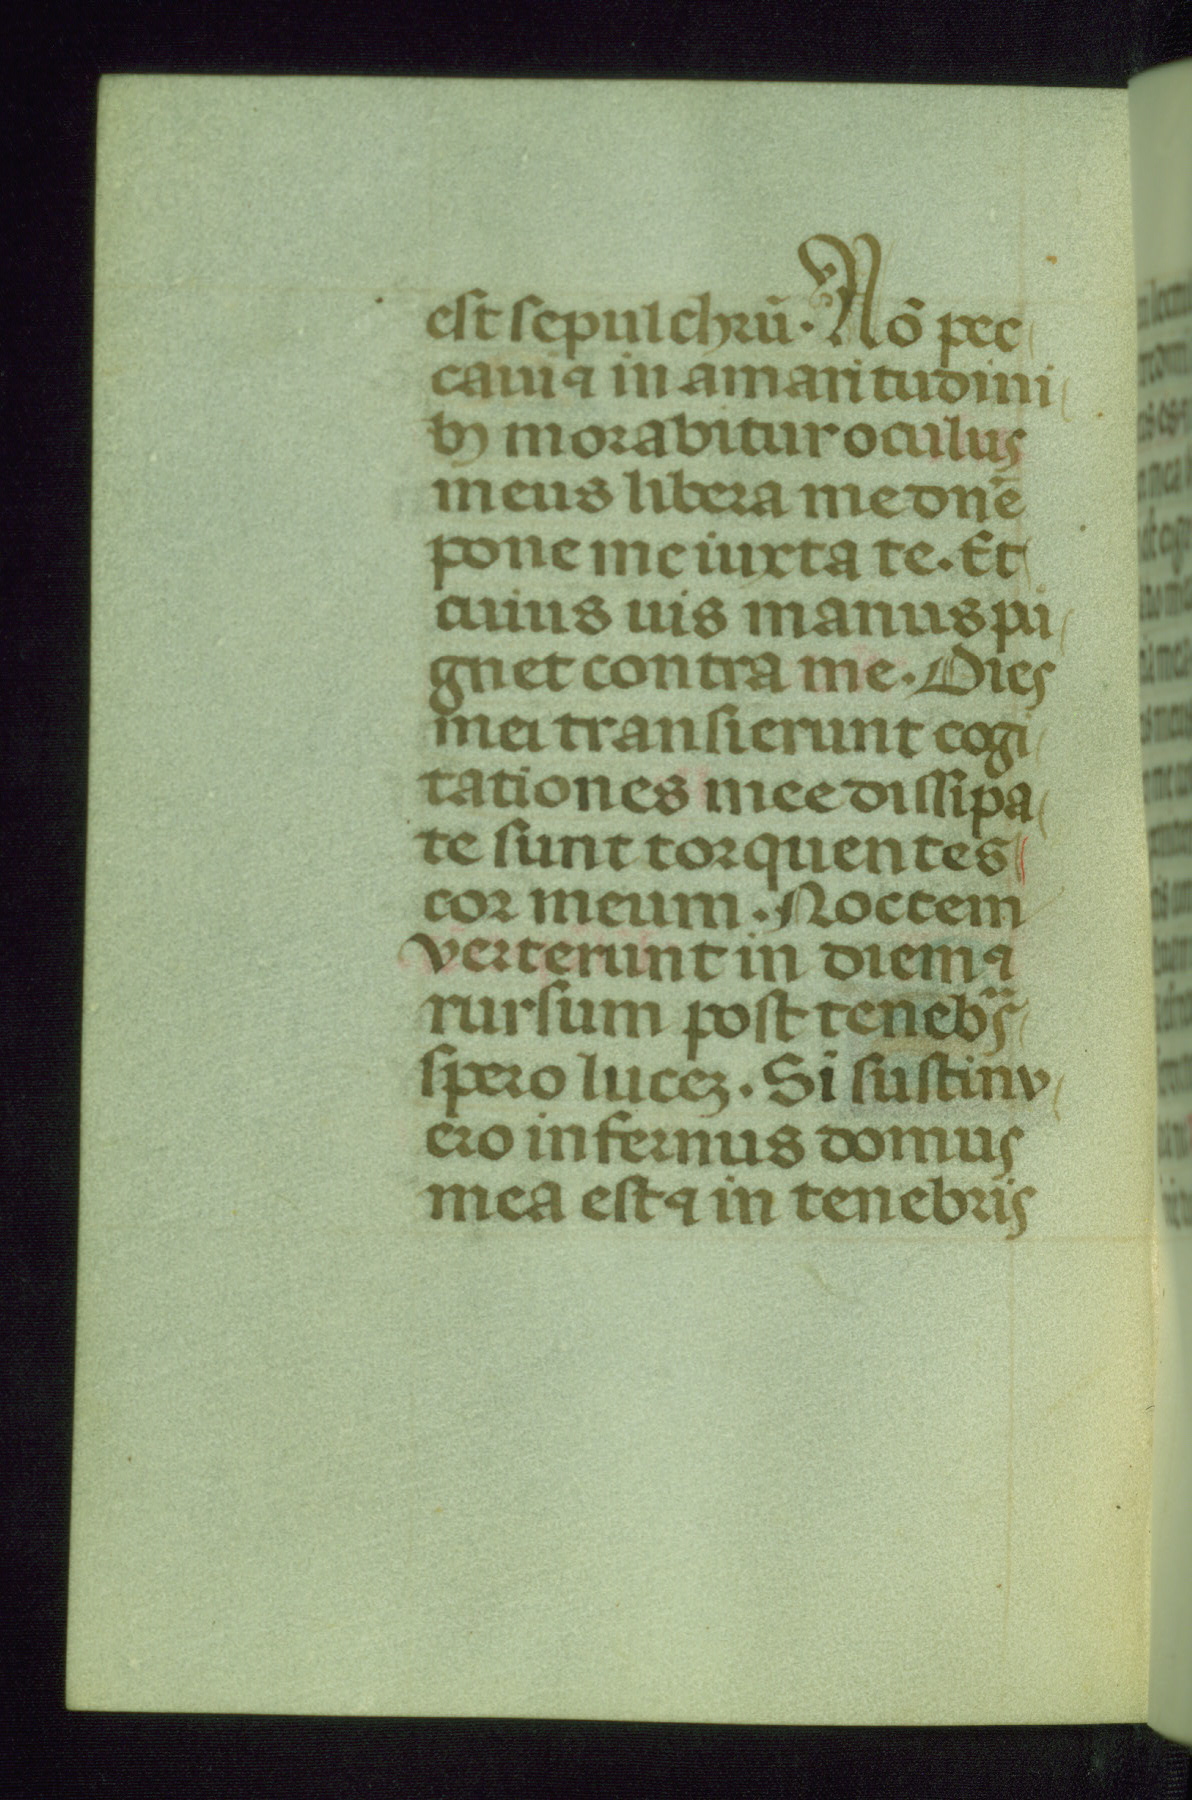 est sepulchrū. Nō pec
caui ⁊ in amaritudini
bꝫ morabitur oculus
meus libera me dn̄e
pone me iuxta te. Et
cuius uis manus pu
gnet contra me. Dies
mei transierunt cogi
tationes mee dissipa
te sunt torquentes
cor meum. Noctem
verterunt in diem ⁊
rursum post teneb̄s
spero luceꝫ. Si sustinv
ero infernus domus
mea est ⁊ in tenebris